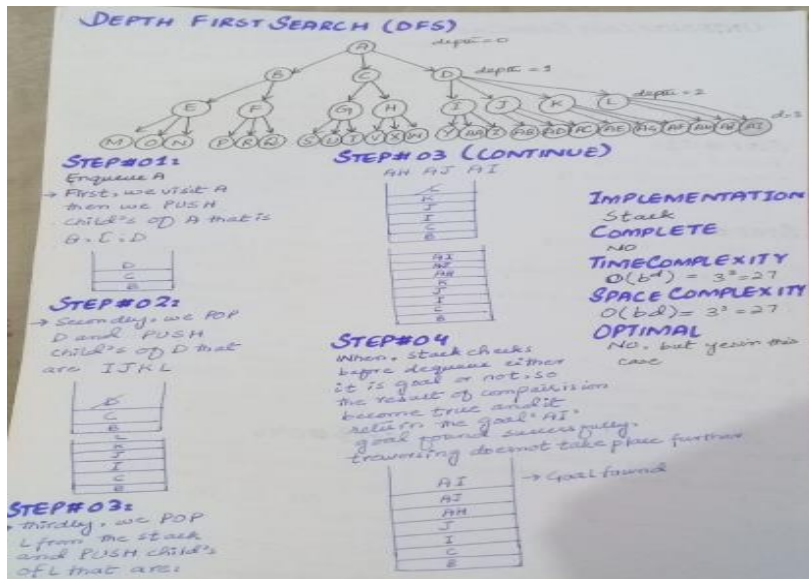 DEPTH FIRST SEARCH (DFS)
A
depth = 0
B C D
depth = 1
E F G H I J K L
depth = 2
M O N P R Q S U T V X W Y AA
AI
STEP#01:
Enqueue A
→ First, we visit A
then we PUSH
child's of A that is
B, C, D
D
C
B
STEP#02:
→ Secondly, we POP
D and PUSH
child's of D that
are IJKL
D
C
B
L
K
J
I
C
B
STEP#03:
thirdly, we POP
L from the stack
and PUSH child's
of L that are:
STEP#03 (CONTINUE)
AH AJ AI
L
K
J
I
C
B
AI
AJ
AH
K
J
I
C
B
STEP#04
When, stack checks
before dequeue either
it is goal or not, so
the result of comparision
become true and it
return the goal "AI".
goal found successfully.
traversing doesnot take place further
AI
AJ
AH
J
I
C
B
→ Goal found
IMPLEMENTATION
Stack
COMPLETE
NO
TIME COMPLEXITY
O(b^d) = 3³=27
SPACE COMPLEXITY
O(bd) = 3³=27
OPTIMAL
No, but yes in this
case